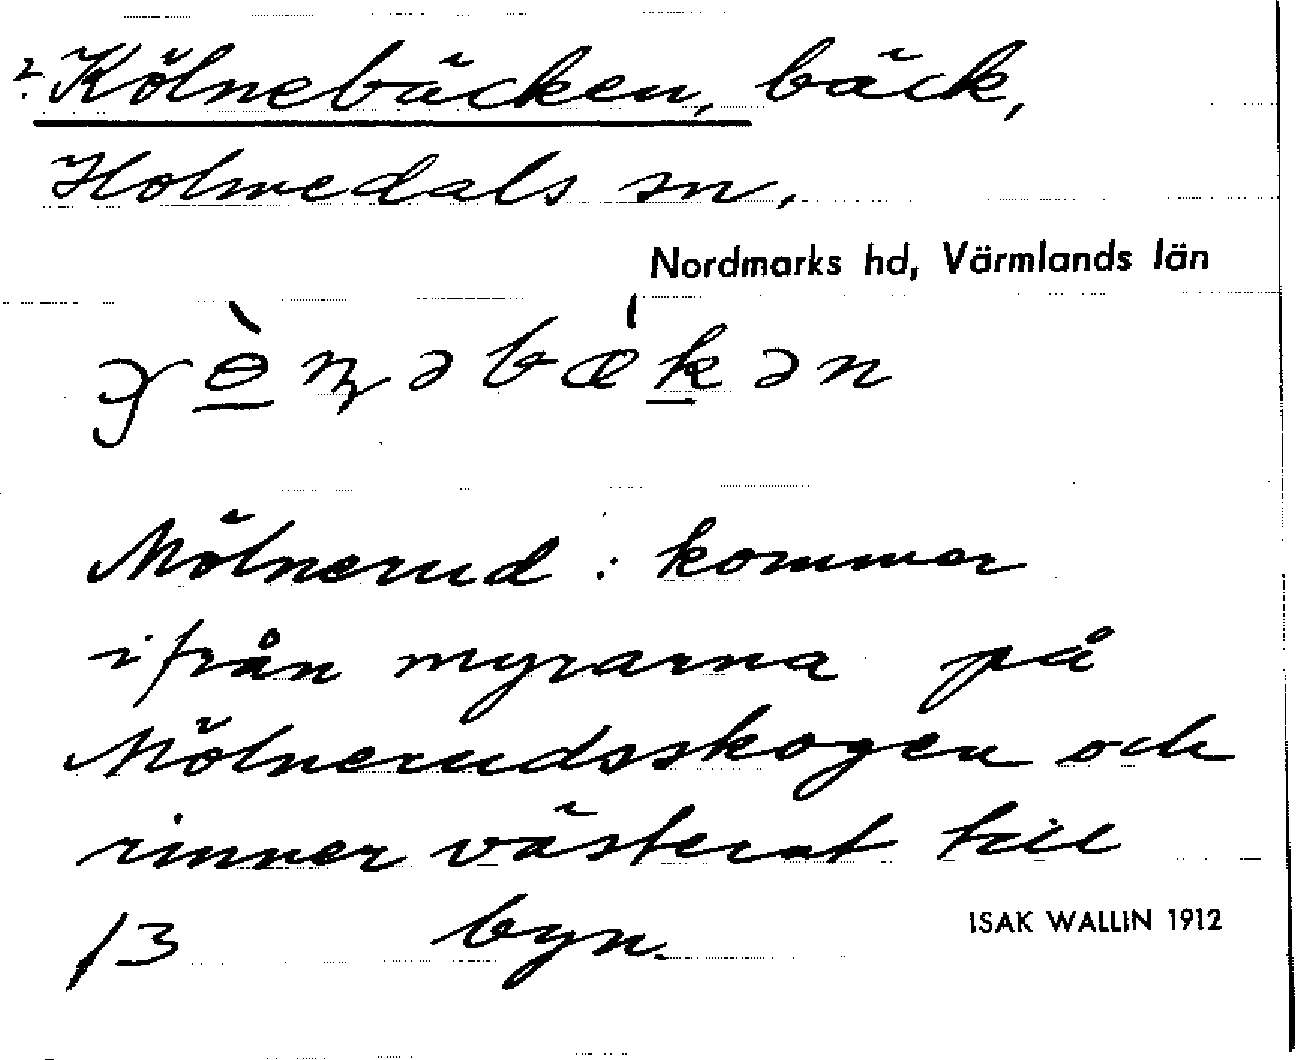 2. Kölnebäcken, bäck,
Holmedals sn,
Nordmarks hd, Värmlands län
Mölnerud: kommer
ifrån myrarna på
Mölnerudsskogen och
rinner västerut till
byn.
/3
ISAK WALLIN 1912